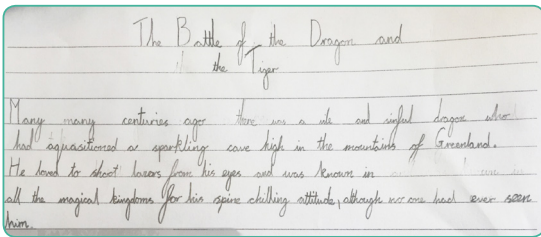 The Battle of the Dragon and
the Tiger
Many many centuries ago there was a vile and sinful dragon who
had aquasitioned a sparkling cave high in the mountains of Greenland.
He loved to shoot lazors from his eyes and was known in
all the magical kingdoms for his spine chilling attitude, although no one had ever seen
him.